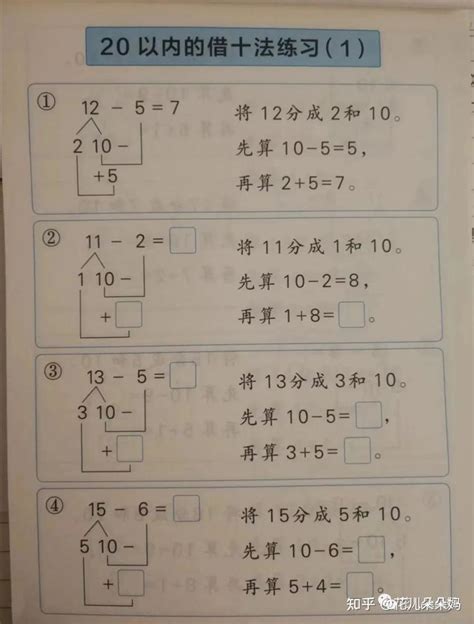 20以内的借十法练习(1)
① 12 - 5 = 7
2 10 -
+5
将12分成2和10。
先算10-5=5,
再算2+5=7。
② 11 - 2 = □
1 10 -
+ □
将11分成1和10。
先算10-2=8,
再算1+8=□。
③ 13 - 5 = □
3 10 -
+ □
将13分成3和10。
先算10-5=□,
再算3+5=□。
④ 15 - 6 = □
5 10 -
+ □
将15分成5和10。
先算10-6=□,
再算5+4=□。
知乎 @花儿朵朵妈